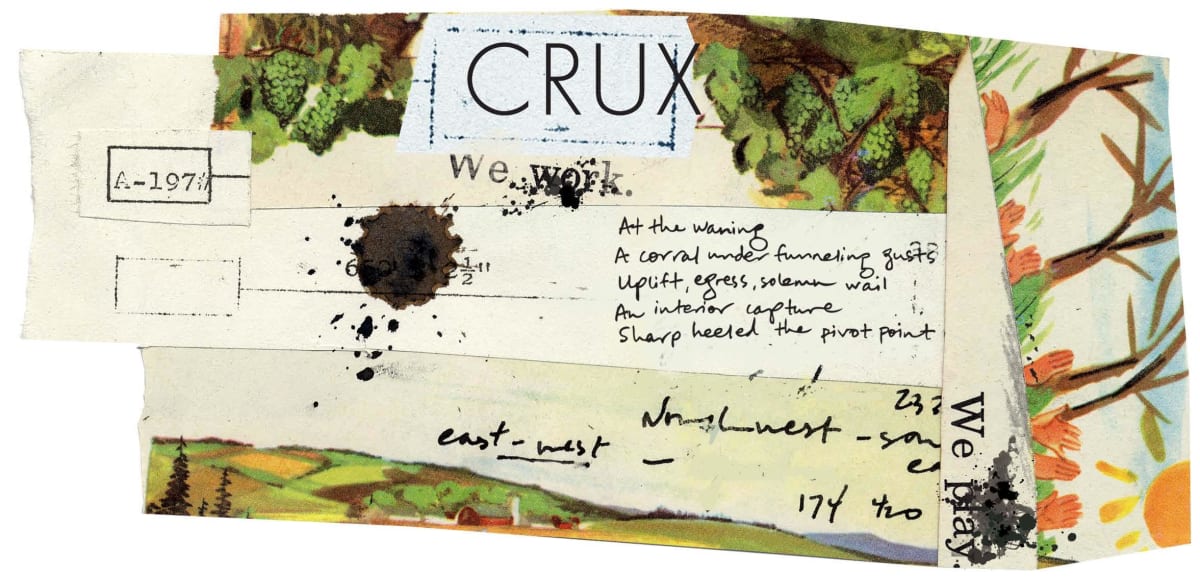 CRUX
We work.
A-197
2½"
At the waning
A corral under funneling gusts
Uplift, egress, solemn wail
An interior capture
Sharp heeled the pivot point
east-west
Northwest - sou
ea
174 420
We play.